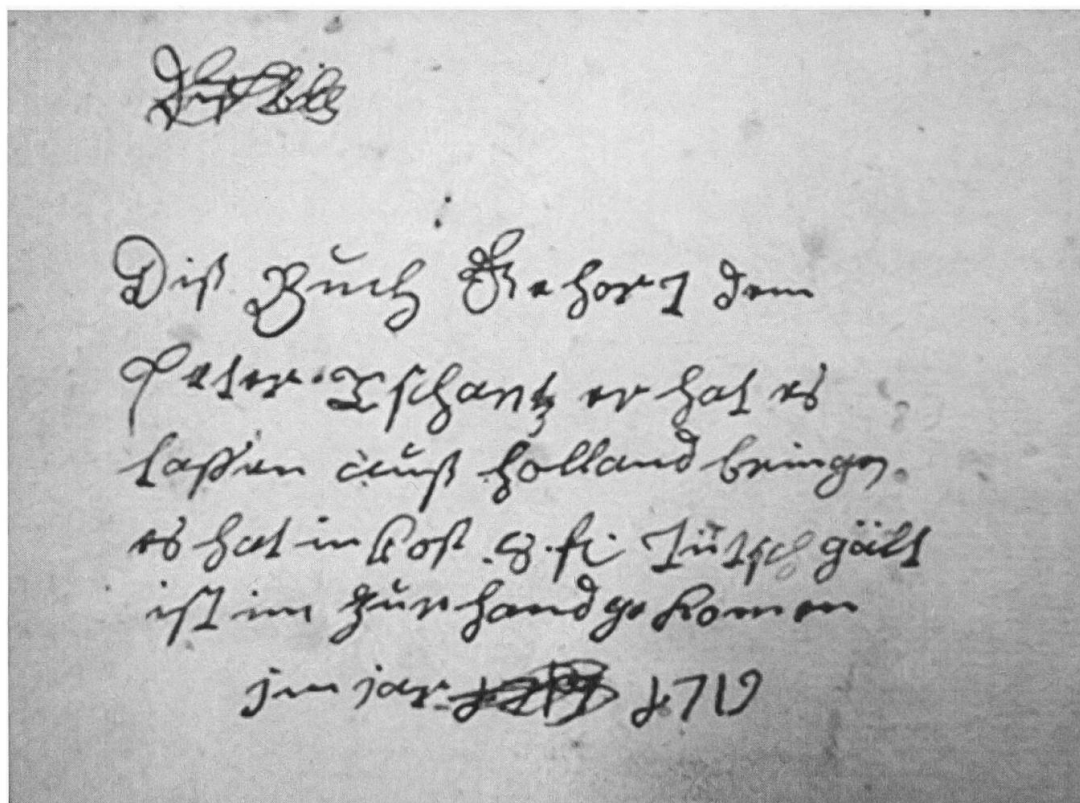 Diß Buch Gehort dem
Peter Tschantz er hat es
laßen auß holland bringen
es hat in kost 8 fl Tütsch gält
ist im zur hand gekomen
jm jar 1719